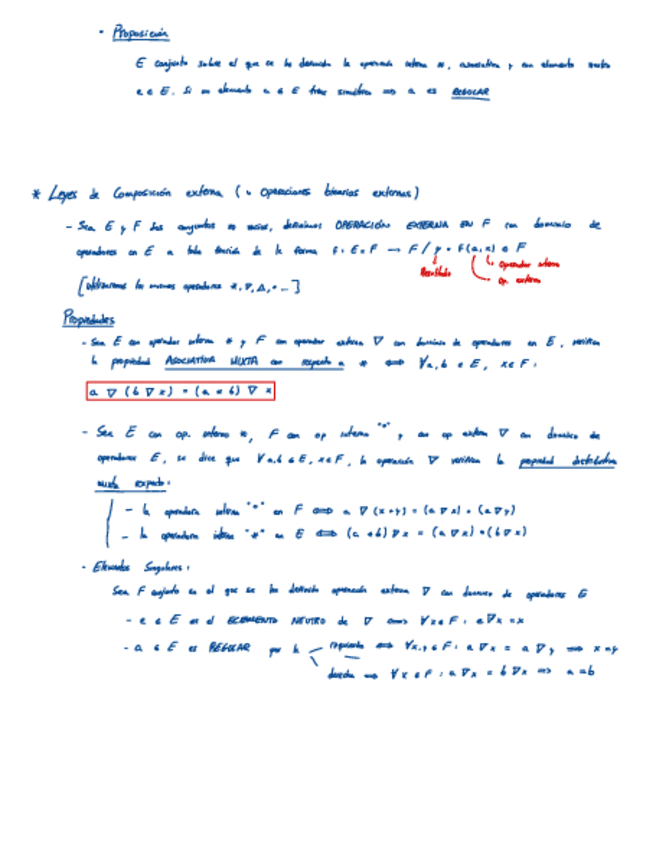 - Proposición
E conjunto sobre el que se ha definido la operación interna *, asociativa y con elemento neutro
e ∈ E. Si un elemento a ∈ E tiene simétrico ⟹ a es REGULAR
* Leyes de Composición externa (o Operaciones binarias externas)
- Sea E y F dos conjuntos no vacíos, definimos OPERACIÓN EXTERNA EN F con dominio de
operadores en E a toda función de la forma f: E×F → F / y = f(a,x) ∈ F
Resultado
Operador
op. externa
[utilizaremos los mismos operadores *, ∇, Δ, · ...]
Propiedades
- Sea E con operador interno * y F con operador externo ∇ con dominio de operadores en E, verifica
la propiedad ASOCIATIVA MIXTA con respecto a * ⟺ ∀a,b ∈ E, x∈F:
a ∇ (b ∇ x) = (a * b) ∇ x
- Sea E con op. interno *, F con op interno "•" y con op externo ∇ con dominio de
operadores E, se dice que ∀a,b ∈ E, x∈F, la operación ∇ verifica la propiedad distributiva
mixta respecto:
- la operadora interna "•" en F ⟺ a ∇ (x•y) = (a ∇ x) • (a ∇ y)
- la operadora interna "*" en E ⟺ (a *b) ∇ x = (a ∇ x) • (b ∇ x)
- Elementos Singulares:
Sea F conjunto en el que se ha definido operación externa ∇ con dominio de operadores E
- e ∈ E es el ELEMENTO NEUTRO de ∇ ⟺ ∀x∈F: e∇x = x
- a ∈ E es REGULAR por la izquierda ⟺ ∀x,y ∈ F: a ∇ x = a ∇ y ⟹ x = y
derecha ⟹ ∀x ∈ F: a ∇ x = b ∇ x ⟹ a = b